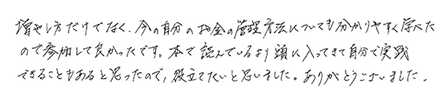 増やし方だけでなく、今の自分のお金の管理方法についても分かりやすく学べた
ので参加して良かったです。本で読んでいるより頭に入ってきて自分で実践
できることもあると思ったので、役立てたいと思いました。ありがとうございました。